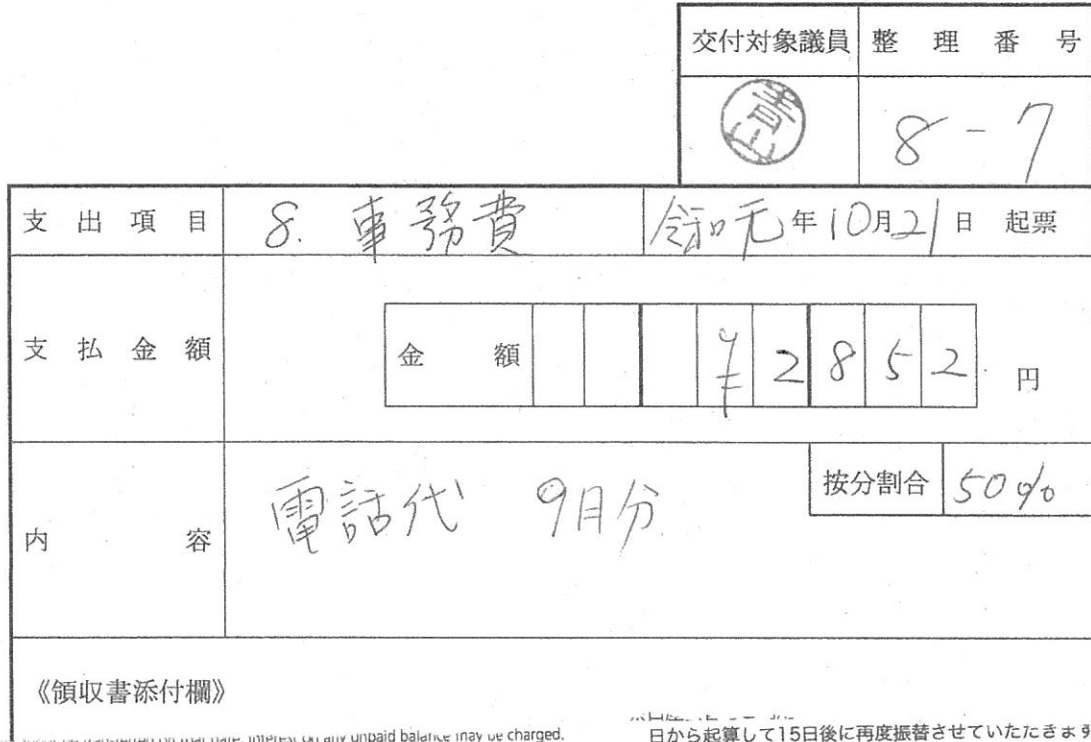 交付対象議員 整理番号
青山 8-7
支出項目 8. 事務費 令和元年10月21日 起票
支払金額 金額 ¥2852 円
内容 電話代 9月分 按分割合 50%
《領収書添付欄》
interest on any unpaid balance may be charged.
日から起算して15日後に再度振替させていただきます